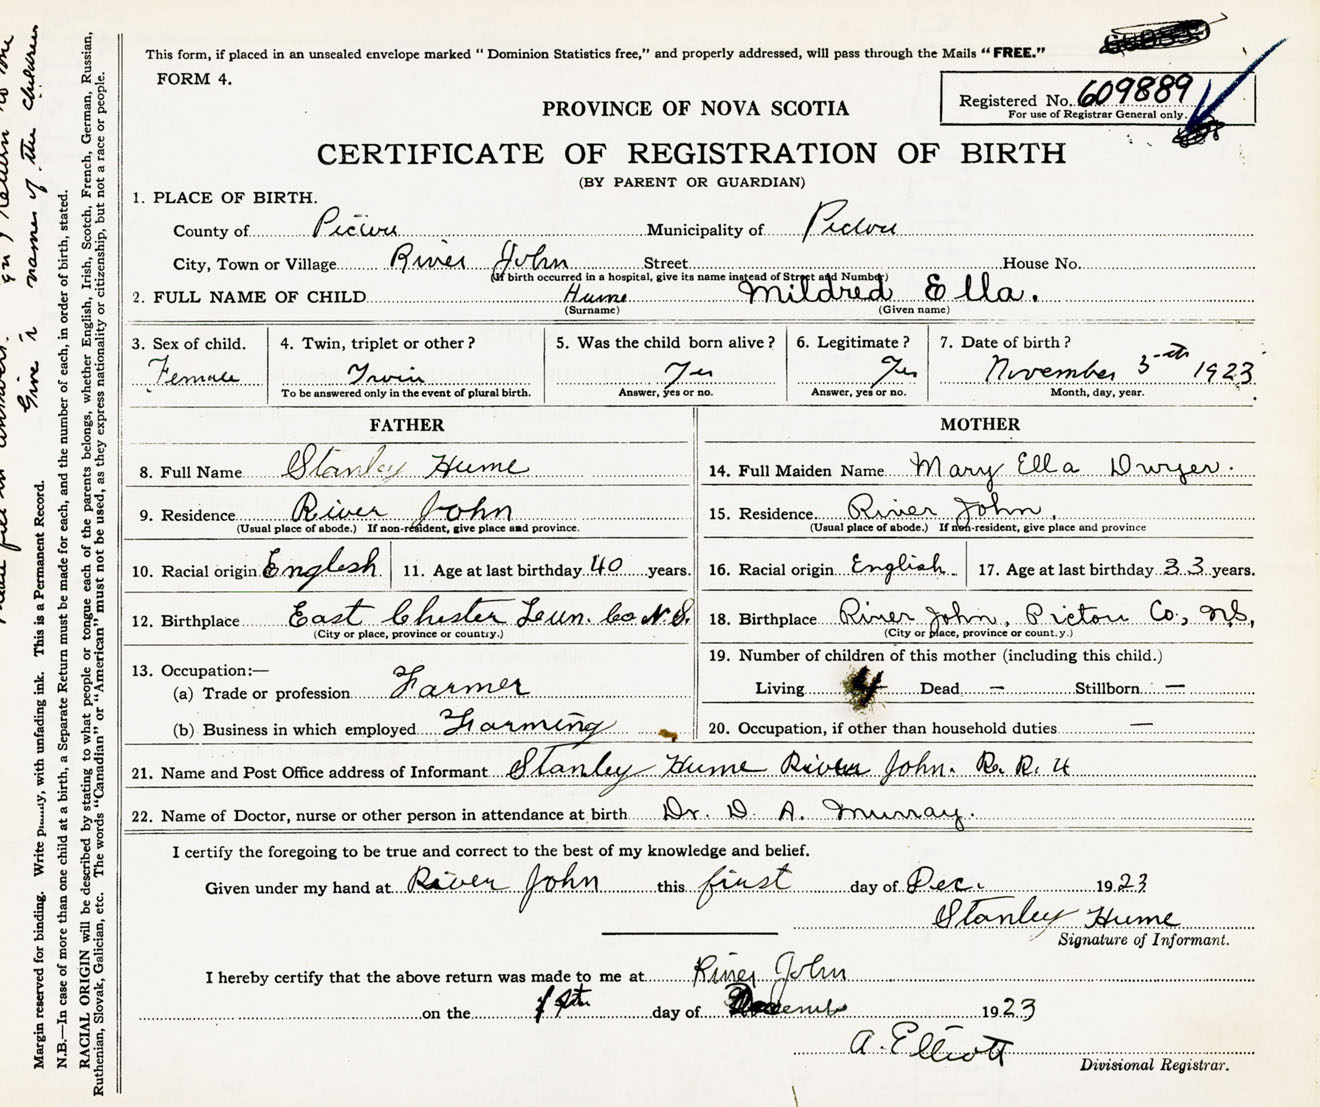 This form, if placed in an unsealed envelope marked "Dominion Statistics free," and properly addressed, will pass through the Mails "FREE."
FORM 4.
Registered No. 609889
For use of Registrar General only.
PROVINCE OF NOVA SCOTIA
CERTIFICATE OF REGISTRATION OF BIRTH
(BY PARENT OR GUARDIAN)
1. PLACE OF BIRTH.
County of Pictou Municipality of Pictou
City, Town or Village River John Street House No.
(If birth occurred in a hospital, give its name instead of Street and Number)
2. FULL NAME OF CHILD Hume Mildred Ella.
(Surname) (Given name)
3. Sex of child. 4. Twin, triplet or other? 5. Was the child born alive? 6. Legitimate? 7. Date of birth?
Female Twin Yes Yes November 3th 1923
To be answered only in the event of plural birth. Answer, yes or no. Answer, yes or no. Month, day, year.
FATHER MOTHER
8. Full Name Stanley Hume 14. Full Maiden Name Mary Ella Dwyer.
9. Residence River John 15. Residence River John.
(Usual place of abode.) If non-resident, give place and province. (Usual place of abode.) If non-resident, give place and province
10. Racial origin English 11. Age at last birthday 40 years. 16. Racial origin English 17. Age at last birthday 33 years.
12. Birthplace East Chester Lun. Co. N.S. 18. Birthplace River John, Pictou Co., N.S.,
(City or place, province or country.) (City or place, province or country.)
19. Number of children of this mother (including this child.)
13. Occupation:—
(a) Trade or profession Farmer Living 4 Dead — Stillborn —
(b) Business in which employed Farming 20. Occupation, if other than household duties —
21. Name and Post Office address of Informant Stanley Hume River John. R. R. 4
22. Name of Doctor, nurse or other person in attendance at birth Dr. D. A. Murray.
I certify the foregoing to be true and correct to the best of my knowledge and belief.
Given under my hand at River John this first day of Dec. 1923
Stanley Hume
Signature of Informant.
I hereby certify that the above return was made to me at River John
on the day of 1923
A. Elliott
Divisional Registrar.
Give names of the children
Margin reserved for binding. Write plainly, with unfading ink. This is a Permanent Record.
N.B.—In case of more than one child at a birth, a Separate Return must be made for each, and the number of each, in order of birth, stated.
RACIAL ORIGIN will be described by stating to what people or tongue each of the parents belongs, whether English, Irish, Scotch, French, German, Russian,
Ruthenian, Slovak, Galician, etc. The words "Canadian" or "American" must not be used, as they express nationality or citizenship, but not a race or people.